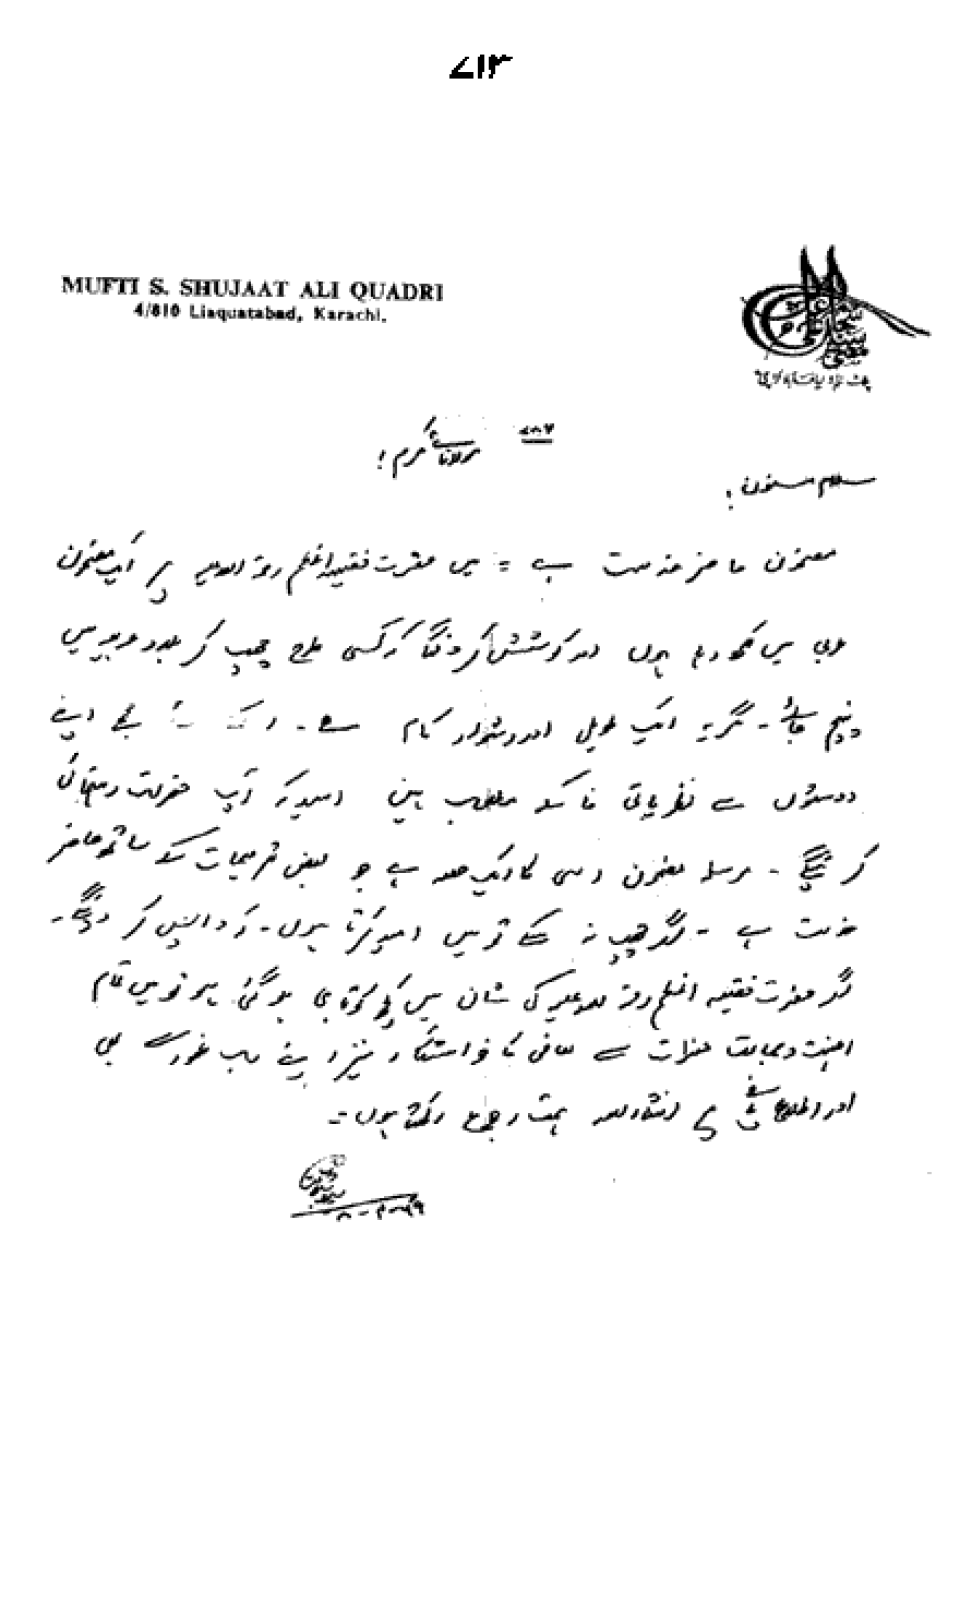 ۷۱۳
MUFTI S. SHUJAAT ALI QUADRI
4/810 Liaquatabad, Karachi.
۷۸۶
مولانائے مکرم !
سلام مسنون !
مضمون حاضر خدمت ہے = میں حضرت فقیہ اعظم رحمۃ اللہ علیہ پر ایک مضمون
عربی میں لکھ رہا ہوں اور کوشش کرونگا کہ کسی طرح چھپ کر بلاد عربیہ میں
پہنچ جائے - مگر یہ ایک طویل اور دشوار کام ہے - مجھے اپنے
دوستوں سے امید کہ آپ حضرات رہنمائی
کرینگے - مرسلہ مضمون اسی کا ایک حصہ ہے جو بعض ترمیمات کے ساتھ حاضر
خدمت ہے - اگر چھپ نہ سکے تو میں امید کرتا ہوں - کہ واپس کر دینگے -
اگر حضرت فقیہ اعظم رحمۃ اللہ علیہ کی شان میں کچھ کوتاہی ہو گئی ہو تو میں تمام
حضرات سے معافی کا خواستگار نیز اپنے رب غفور سے بھی
اور اطلاع پر انشاء اللہ رجوع رکھتا ہوں -